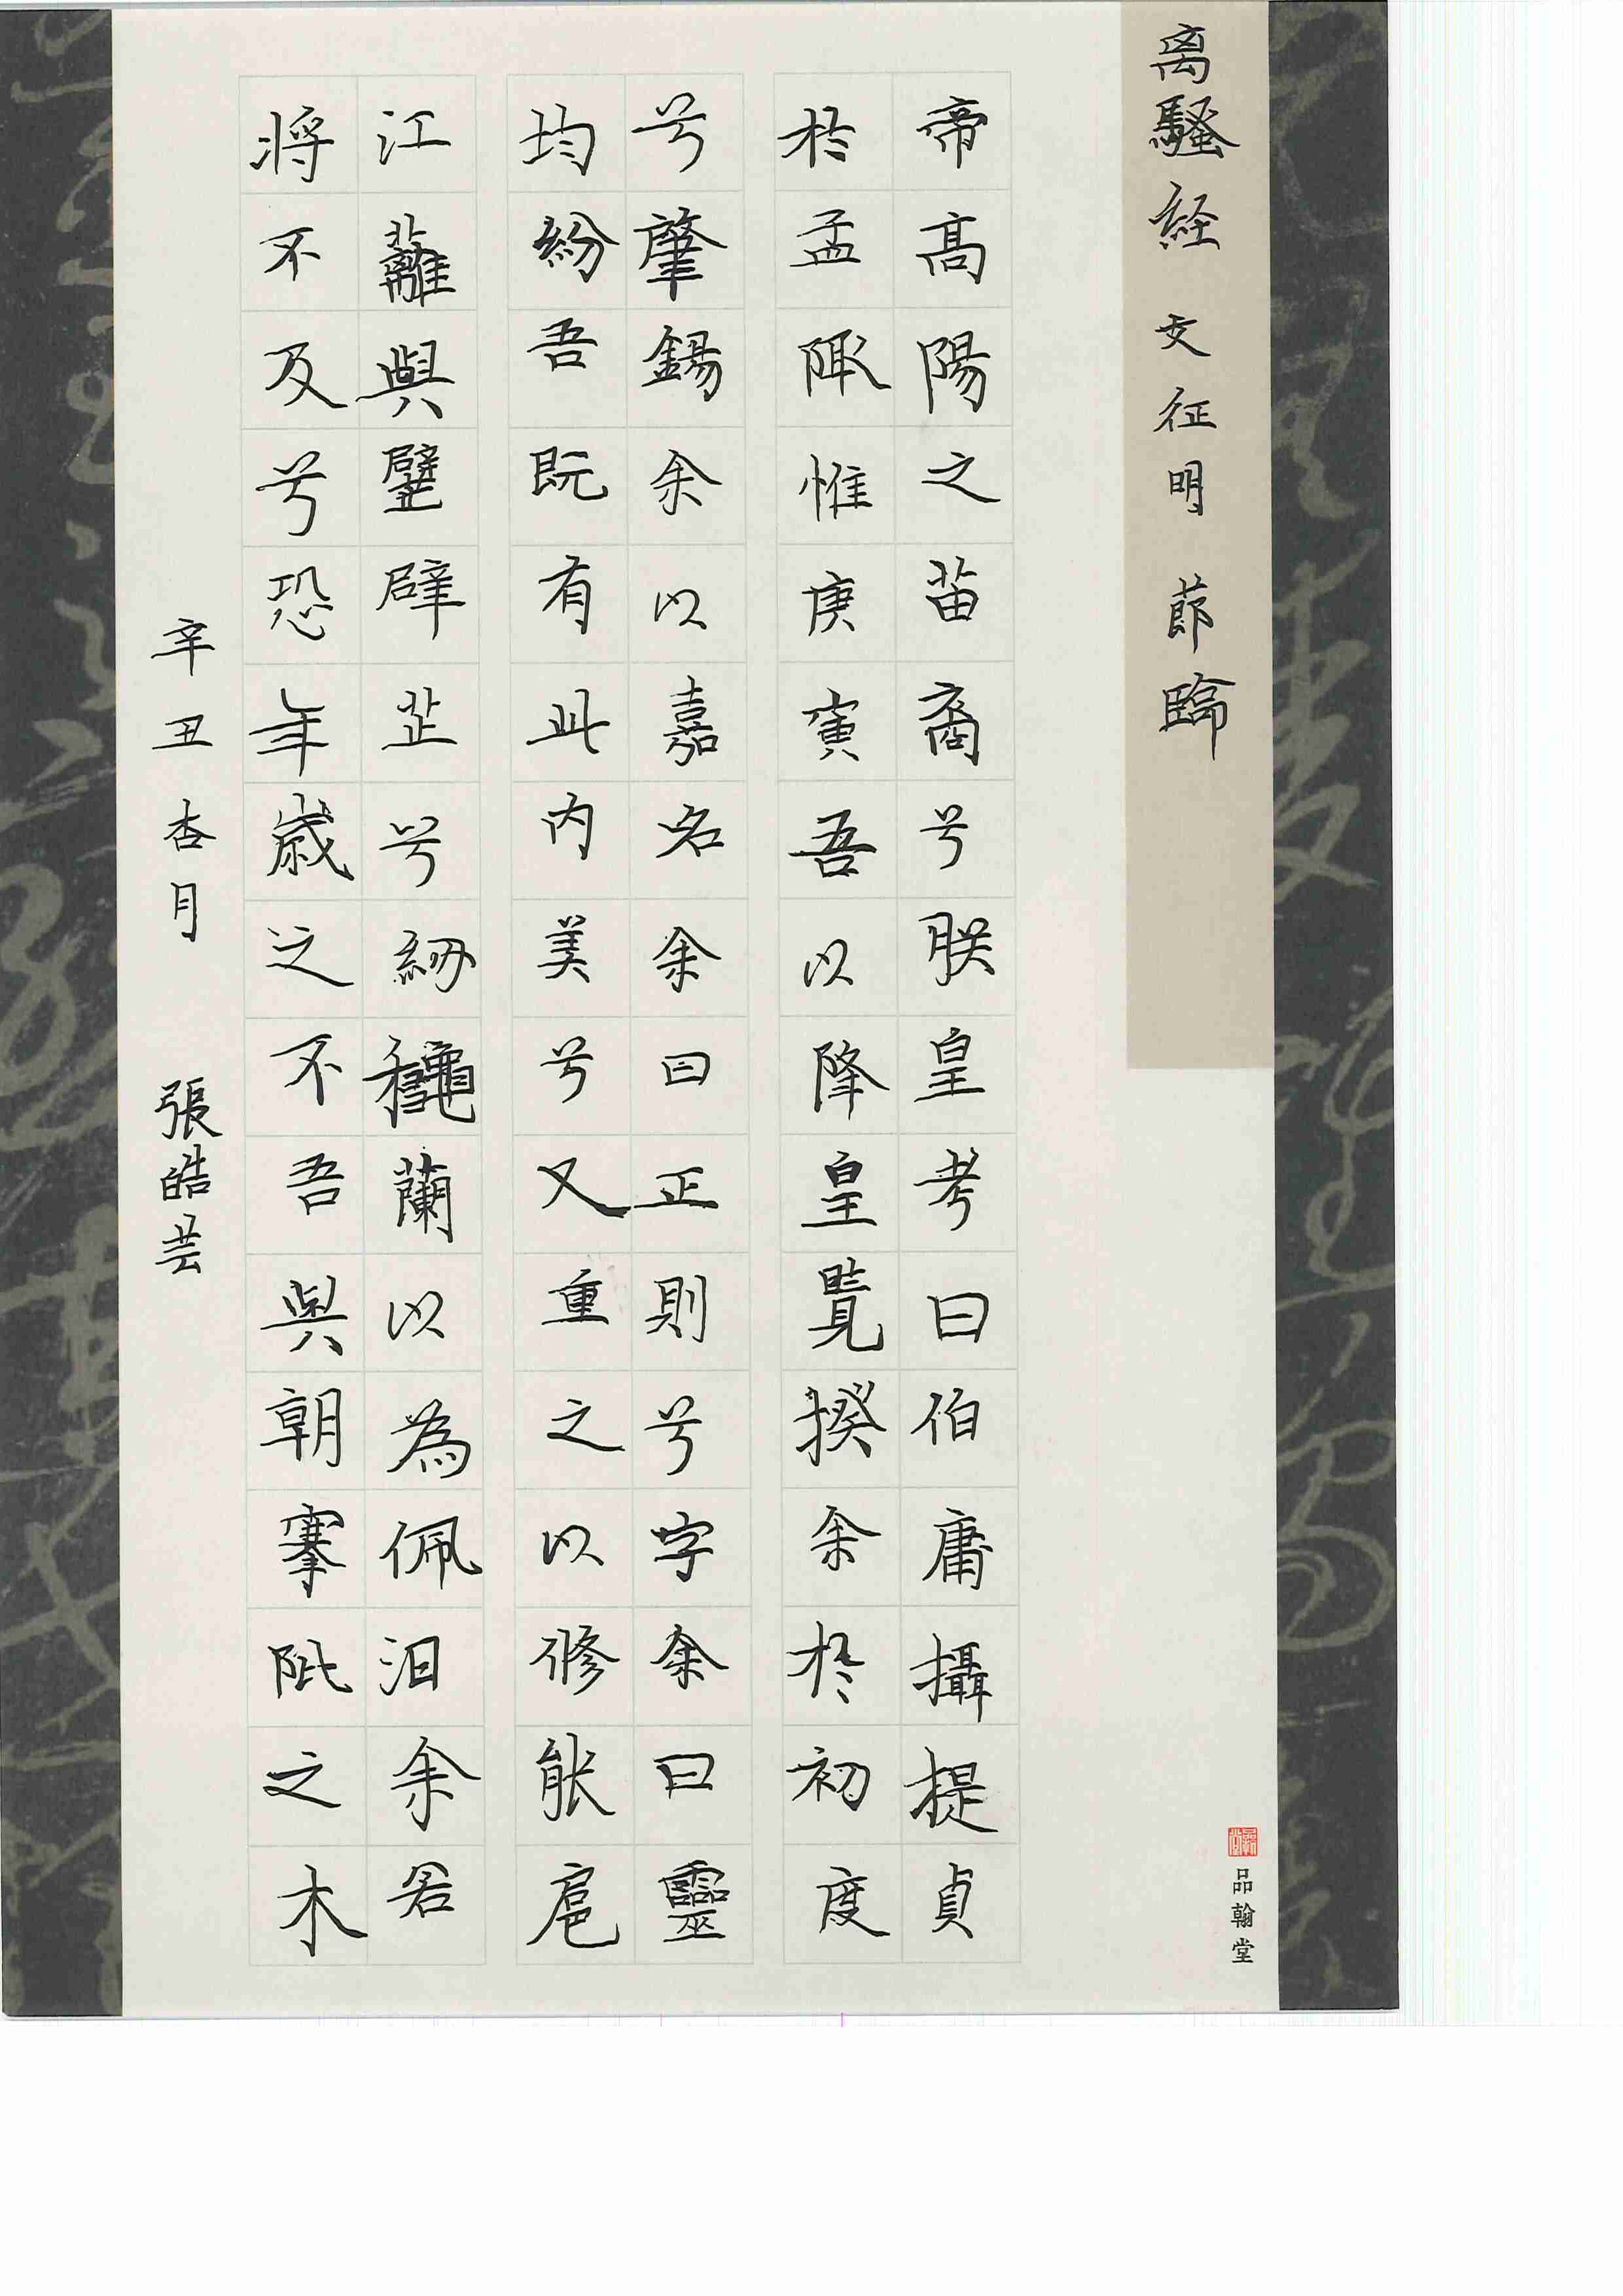 离騷経 文征明 節臨
帝高陽之苗裔兮朕皇考曰伯庸攝提貞
於孟陬惟庚寅吾以降皇覽揆余於初度
兮肇錫余以嘉名余曰正則兮字余曰靈
均紛吾既有此内美兮又重之以修能扈
江蘺與辟芷兮紉穐蘭以為佩汨余若
将不及兮恐年歲之不吾與朝搴阰之木
辛丑杏月 張皓芸
品翰堂